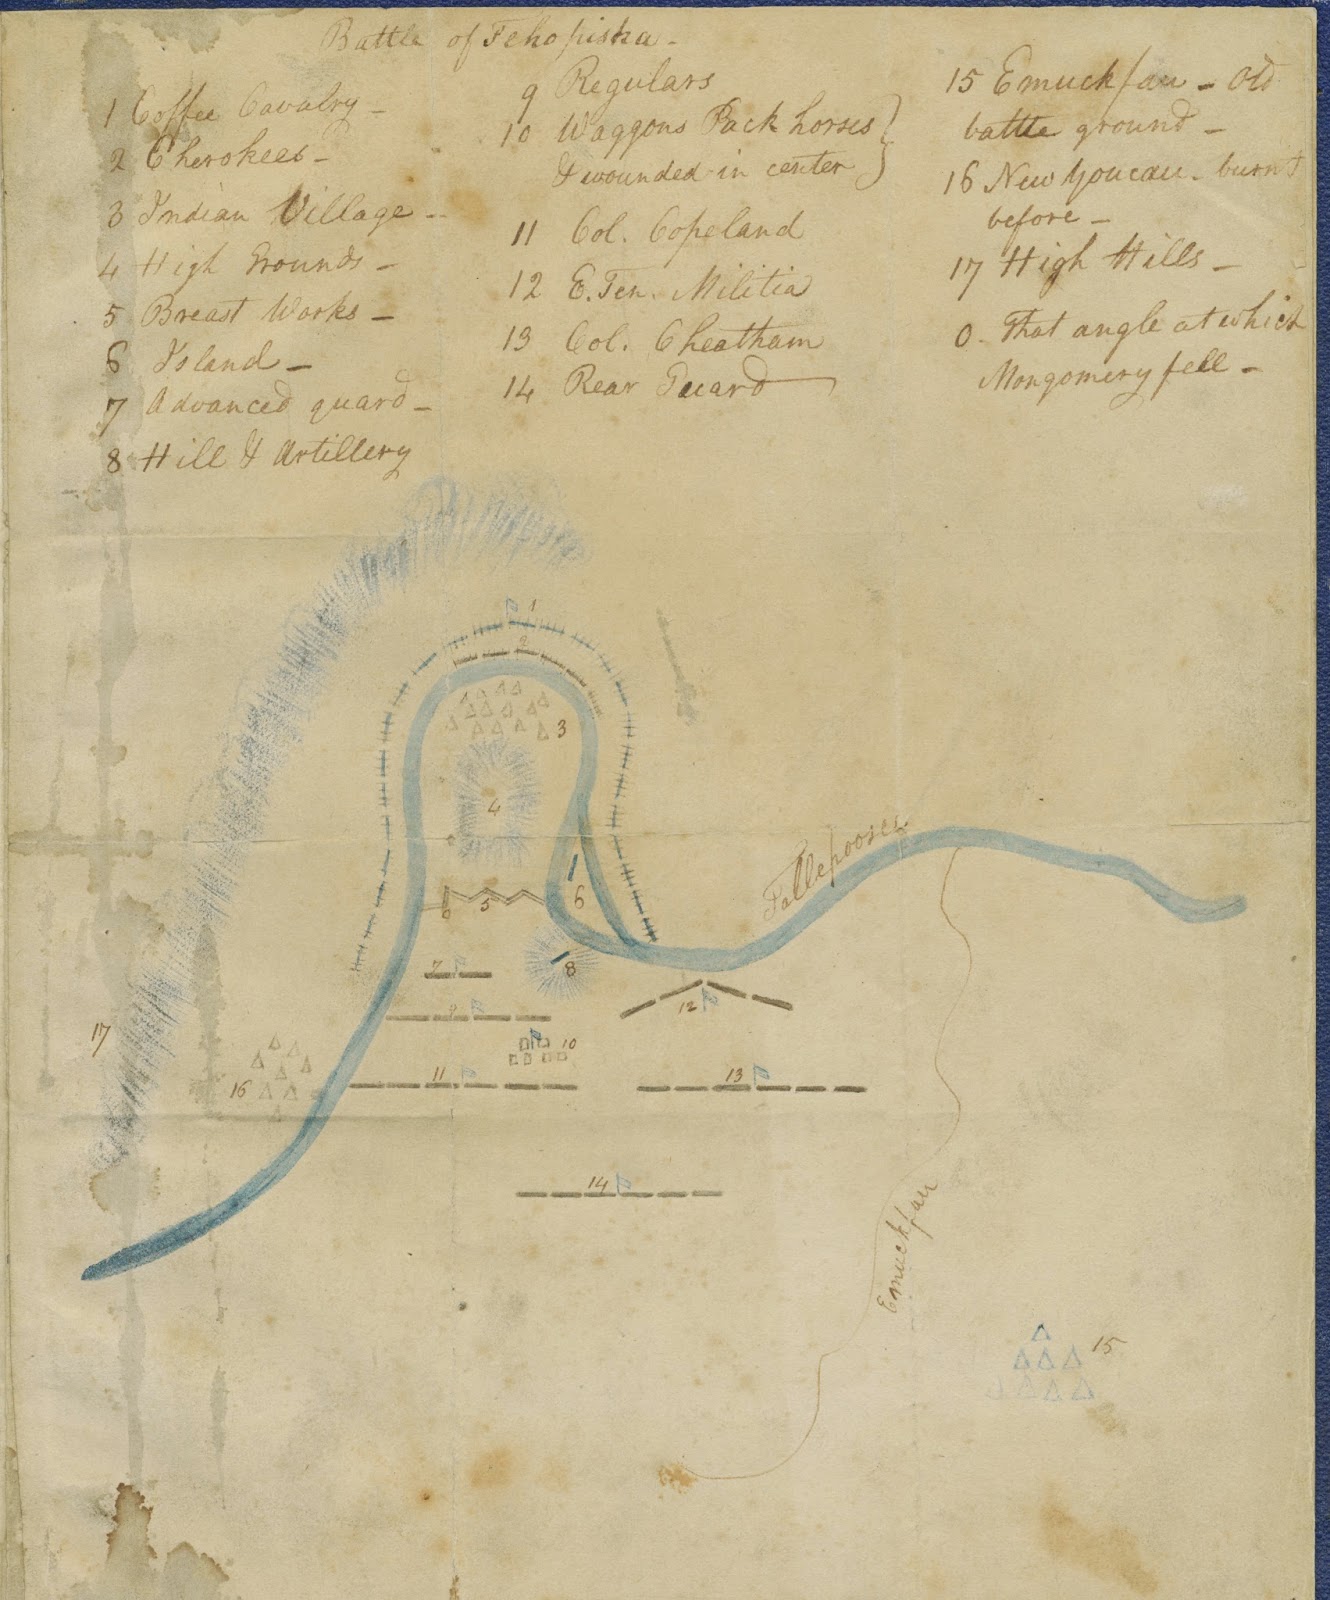 Battle of Tehopiska -
1 Coffee Cavalry -
2 Cherokees -
3 Indian Village -
4 High Grounds -
5 Breast Works -
6 Island -
7 Advanced guard -
8 Hill & Artillery
9 Regulars
10 Waggons Pack horses
& wounded in center
11 Col. Copeland
12 E. Ten. Militia
13 Col. Cheatham
14 Rear Guard
15 Emuckfau - Old
battle ground -
16 New Youcau - burnt
before -
17 High Hills -
0. That angle at which
Montgomery fell -
1
2
3
4
0 5
6
Tallepoosey
7
8
9
12
10
17
11
13
16
14
Emuckfau
15